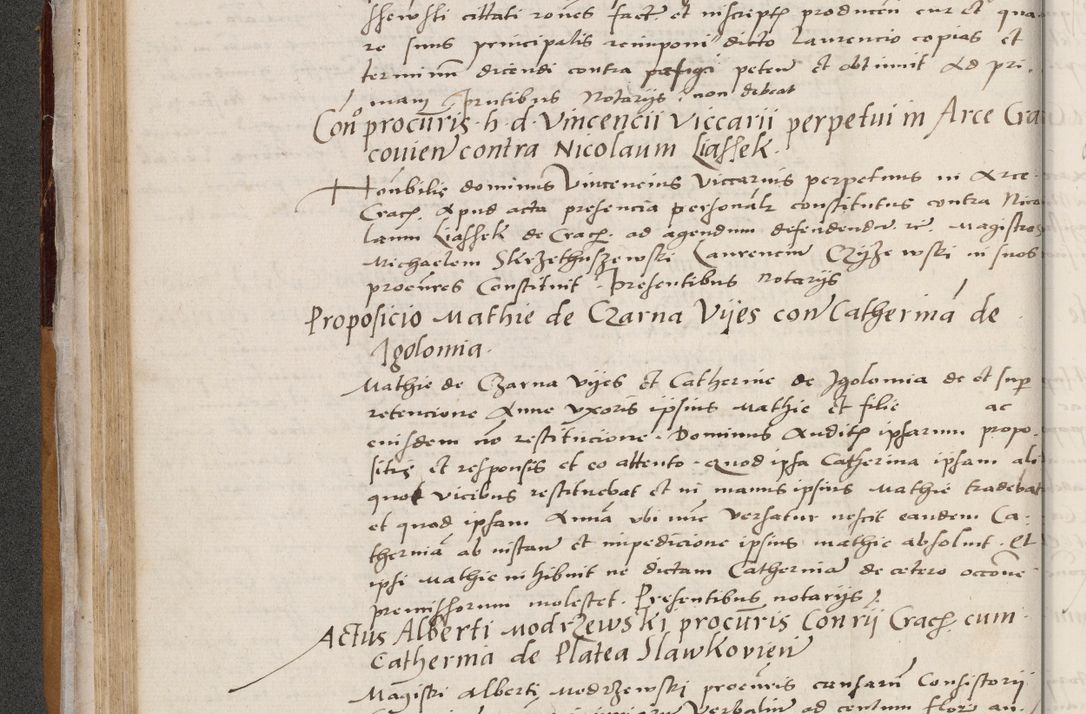 ssewski cittati ron̄es fact et inscript producen̄ cur et qua
re suus principalis reimponi dicto Laurencio copias et
terminum dicendi contra peten̄ et obtinuit ad pri-
mam p̄ntibus Notarijs non debeat
Con̄o procur̄is h. d. Vincencii Viccarii perpetui in Arce Cra
covien̄ contra Nicolaum Liassek.
Hon̄bilis dominus Vincencius Viccarius perpetuus in Arce
Crac̄. Apud acta presencia personalr constitutus contra Nico
laum Liassek de Crac̄. ad agendum defendendū rc̄. Magistros
Michaelem Skrzethuszewski Laurencium Czyżewski in suos
procur̄es Constituit. Presentibus Notarijs
Proposicio Mathie de Czarna Vijes con̄ Catherinā de
Igolomia.
Mathie de Czarna vijes et Catherine de Igolomia de et super
retencione Anne uxoris ipsius Mathie et filie ac
eiusdem nō restitucione. Dominus Auditis ipsarum propo-
sitis et responsis et eo attento. quod ipsa Catherina ipsam ali
quot vicibus restituebat et in manus ipsius Mathie tradebat
et quod ipsam Annā ubi nūc versatur nescit eandem Ca-
therinā ab instan̄ et impedicione ipsius mathie absoluit. Et
ipsi Mathie inhibuit ne dictam Catherinā de cetero occōne
premissorum molestet. Presentibus notarijs
Actus Alberti Modrzewski procur̄is Con̄rii Crac̄. cum
Catherina de Platea Slawkovien̄
Magistri Alberti Modrzewski procur̄is causarū Consistorii
Verbaliū ad centum flor an.